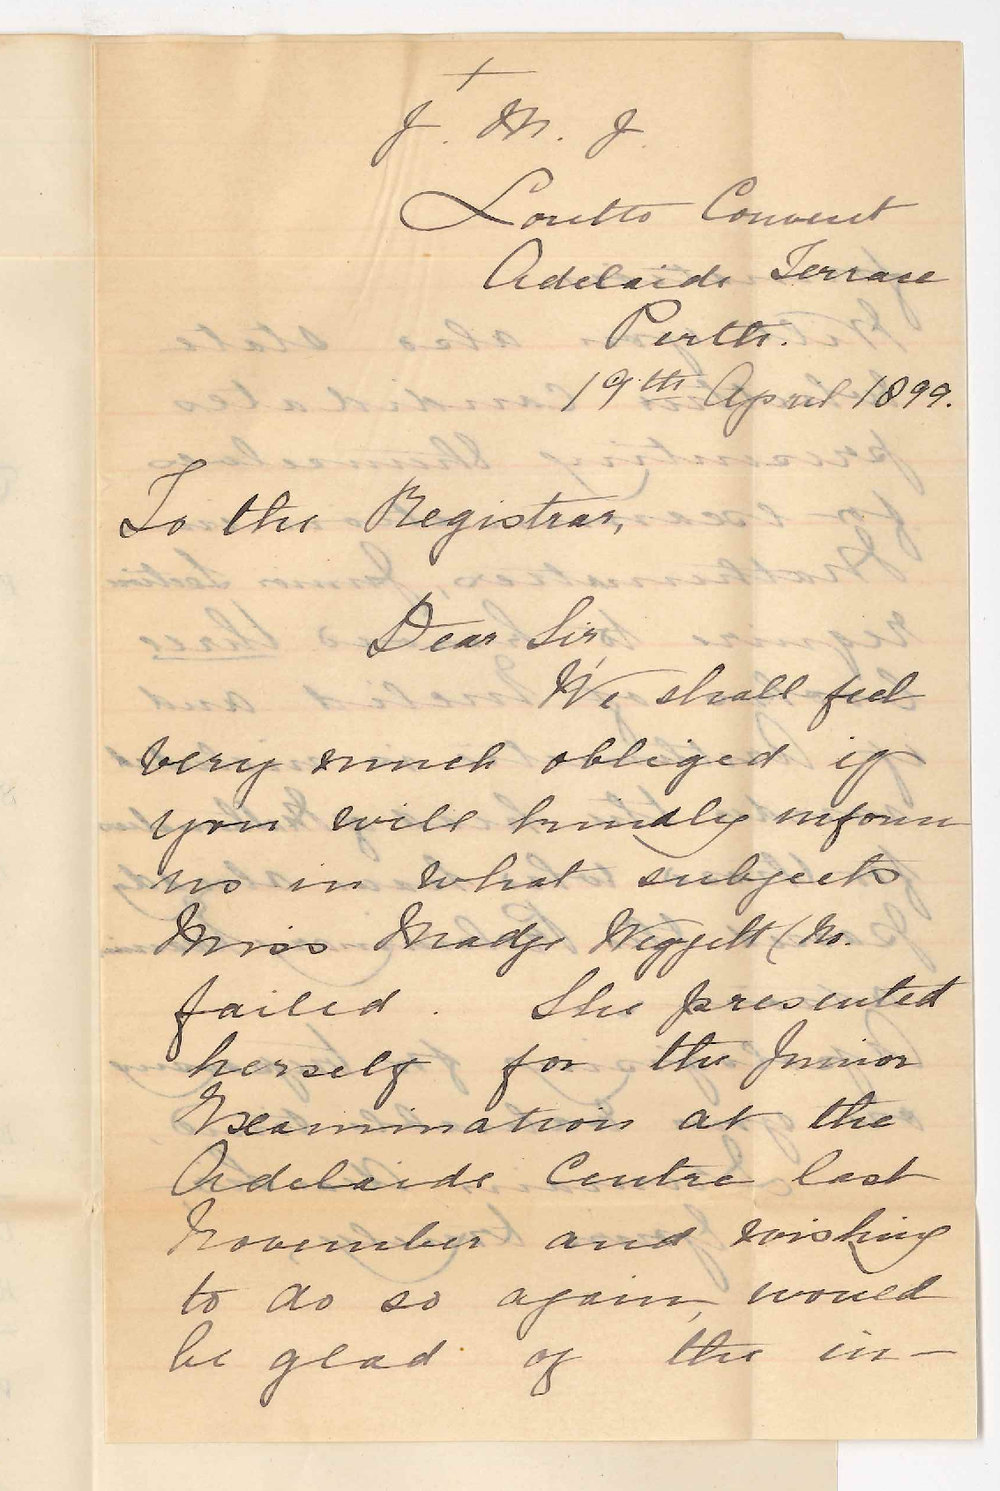 +
J. M. J.
Loretto Convent
Adelaide Terrace
Perth.
19th April 1899.
To the Registrar,
Dear Sir,
We shall feel
very much obliged if
you will kindly inform
us in what subjects
Miss Madge Weggelt (No.
failed. She presented
herself for the Junior
Examination at the
Adelaide Centre last
November and wishing
to do so again, would
be glad of the in-